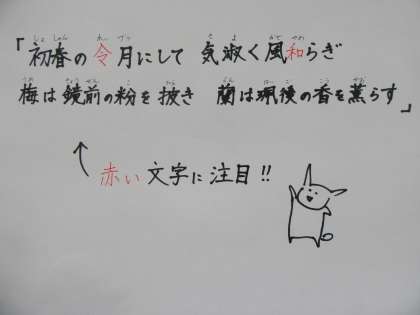 「初春の令月にして 気淑く風和らぎ
梅は鏡前の粉を披き 蘭は珮後の香を薫らす」
赤い文字に注目!!